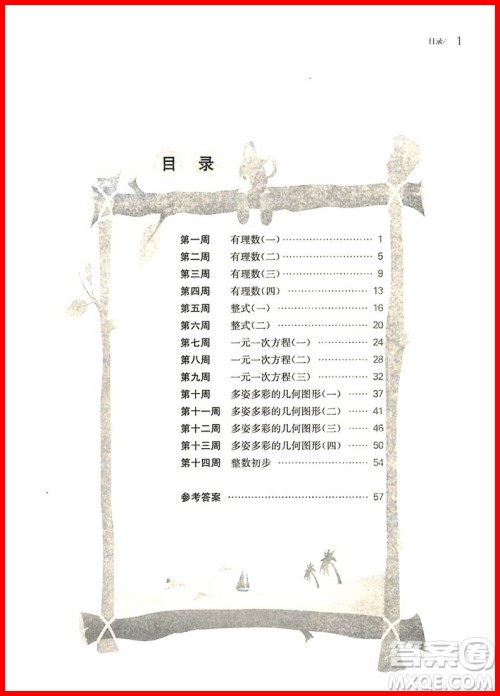 目录/ 1
目 录
第一周 有理数(一) 1
第二周 有理数(二) 5
第三周 有理数(三) 9
第四周 有理数(四) 13
第五周 整式(一) 16
第六周 整式(二) 20
第七周 一元一次方程(一) 24
第八周 一元一次方程(二) 28
第九周 一元一次方程(三) 32
第十周 多姿多彩的几何图形(一) 37
第十一周 多姿多彩的几何图形(二) 41
第十二周 多姿多彩的几何图形(三) 46
第十三周 多姿多彩的几何图形(四) 50
第十四周 整数初步 54
参考答案 57
答案圈
MXQE.COM